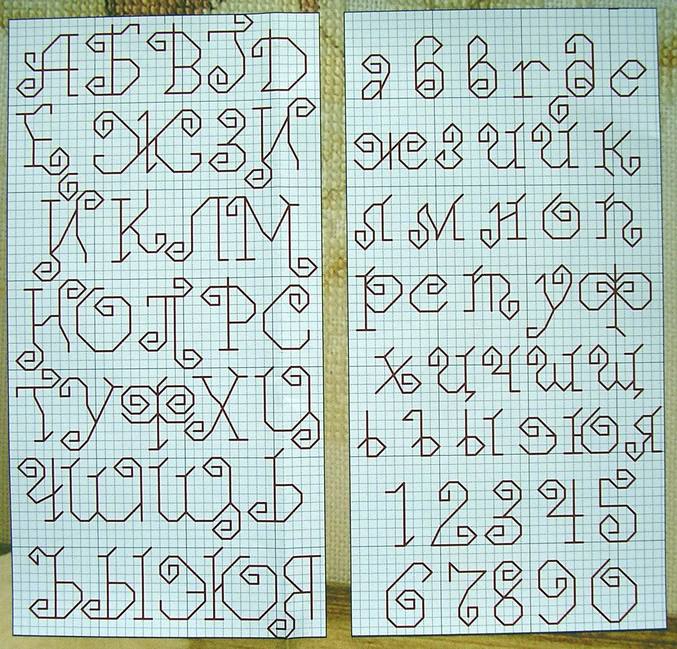 А Б В Г Д
Е Ж З И
Й К Л М
Н О П Р С
Т У Ф Х Ц
Ч Ш Щ Ь
Ъ Ы Э Ю Я
а б в г д е
ж з и й к
л м н о п
р с т у ф
х ц ч ш щ
ь ъ ы э ю я
1 2 3 4 5
6 7 8 9 0